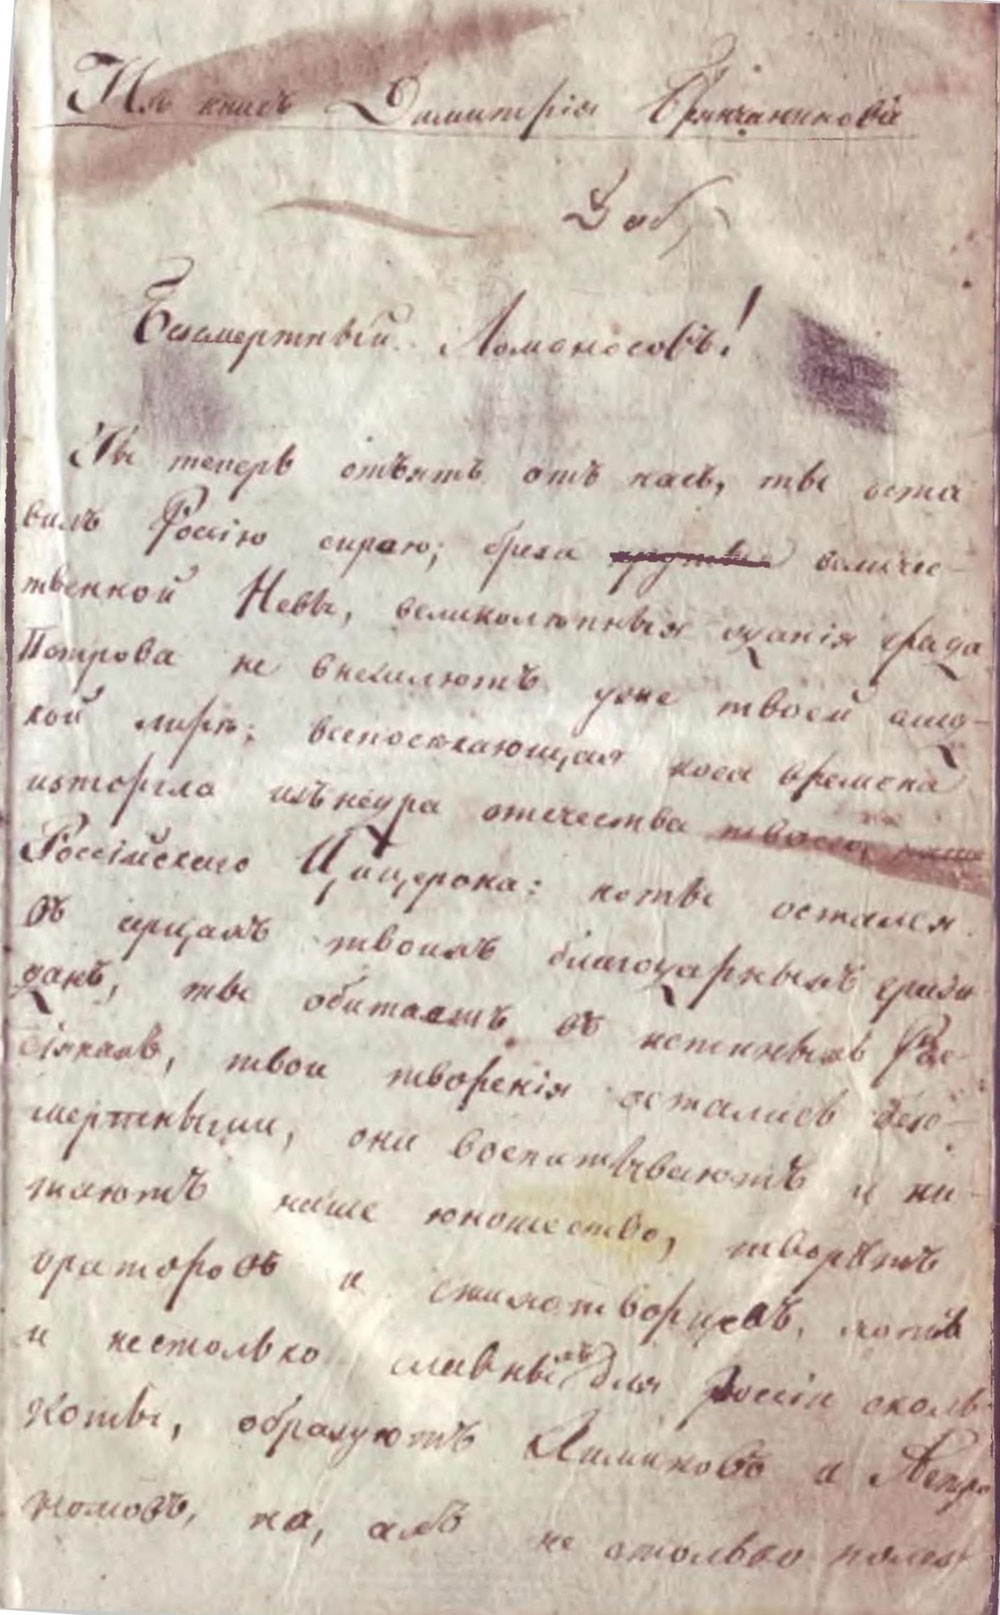 Изъ книгъ Димитрія Брянчанинова
Безсмертный Ломоносовъ!
Ты теперь отнятъ отъ насъ, ты оста
вилъ Россію сирою; брега величес-
твенной Невы, великолепныя зданія града
Петрова не внемлютъ уже твоей слад-
кой лиръ; всепосекающая коса времена
изторгла изънедра отечества
Россійскаго Цицерона: но ты остался
въ серцахъ твоихъ благодарныхъ гражд
данъ, ты обитаешь въ истинныхъ Рос-
сіянахъ, твои творенія остались безс-
мертными, они воспитываютъ и пи-
таютъ наше юношество, творятъ
ораторовъ и стихотворцевъ, хотя
и нестолько славныхъ для Россіи сколь
ко ты, образуютъ Химиковъ и Астро
номовъ, но, ахъ не столько полез